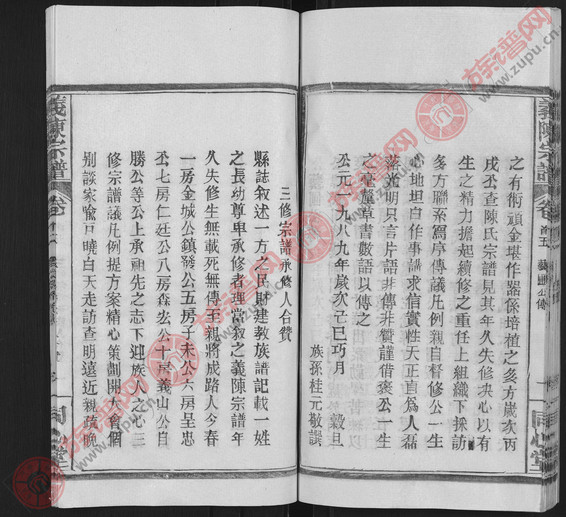 之有術頑金堪作器保培植之多方歲次丙
戌公查陳氏宗譜見其年久失修決心以有
生之精力擔起續修之重任上組織下採訪
多方聯系寫序傳議凡例親自督修公一生
心地坦白作事講求信實性天正直為人磊
落光明只言片語非傳非贊謹借表公一生
之毫釐草書數語以傳之
公元一九八九年歲次己巳巧月 穀旦
族孫桂元敬譔
三修宗譜承修人合贊
縣誌叙述一方之民財建教族譜記載一姓
之長幼尊卑承修者理當叙之義陳宗譜年
久失修生無載死無傳至親將成路人今春
一房金城公鎮發公五房子未公六房呈忠
公七房仁廷公八房森宏公十房義山公自
勝公等公上承祖先之志下迎族人之心三
修宗譜議凡例提方案精心策劃開大會個
別談家喻戶曉白天走訪查明遠近親疏晚
義陳宗譜
卷首五
義陳宗譜
卷首
同心堂
族谱网
www.zupu.cn